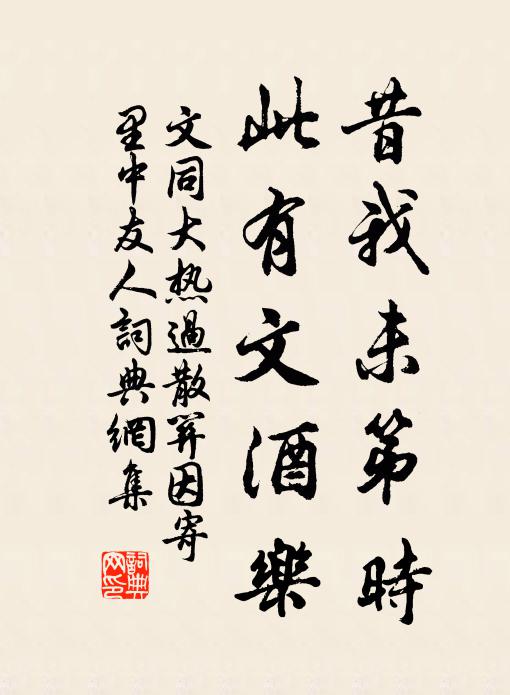 昔我未第時
此有文酒樂
文同大热過散關因寄
里中友人詞典網集
詞典
网印